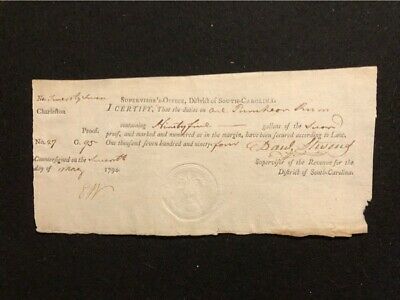 No. Twenty Seven
Charleston
Proof.
No. 27 G. 95
Countersigned on the Seventh
day of May 1794
SUPERVISOR's-OFFICE, District of SOUTH-CAROLINA:
I CERTIFY, That the duties on one Puncheon Rum
containing Ninety five gallons of the Second
proof, and marked and numbered as in the margin, have been secured according to Law,
One thousand seven hundred and ninety four
Supervisor of the Revenue for the
District of South-Carolina.